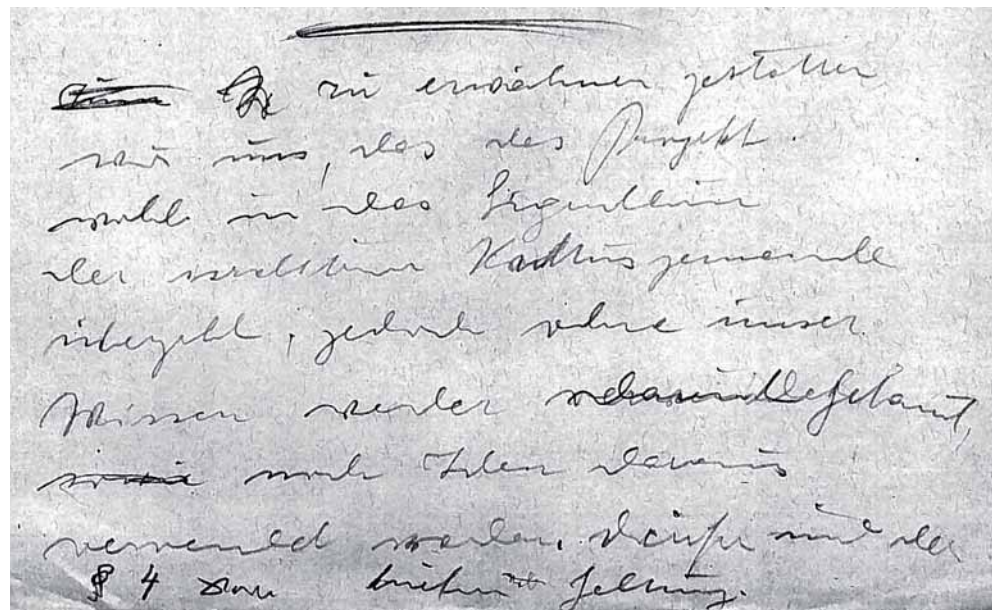 zu erwähnen gestatten
wir uns, das das Projekt
wohl in das Eigentum
der Kultusgemeinde
übergeht, jedoch ohne unser
Wissen weder
noch Ideen daraus
verwendet werden, dürfen und der
§ 4